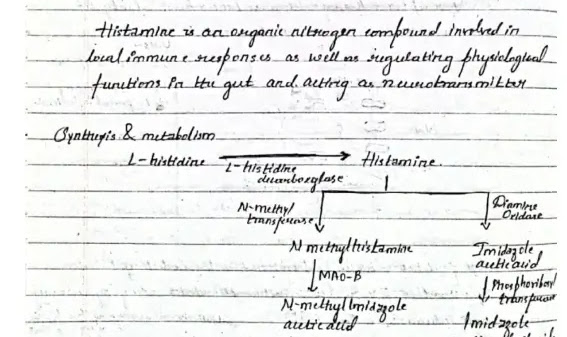 Histamine is an organic nitrogen compound involved in
local immune responses as well as regulating physiological
functions in the gut and acting as neurotransmitter
Synthesis & metabolism
L-histidine → Histamine.
L-histidine
decarboxylase
N-methyl
transferase
Diamine
Oxidase
N methylhistamine
Imidazole
acetic acid
MAO-B
Phosphoribosyl
transferase
N-methyl Imidazole
acetic acid
Imidazole